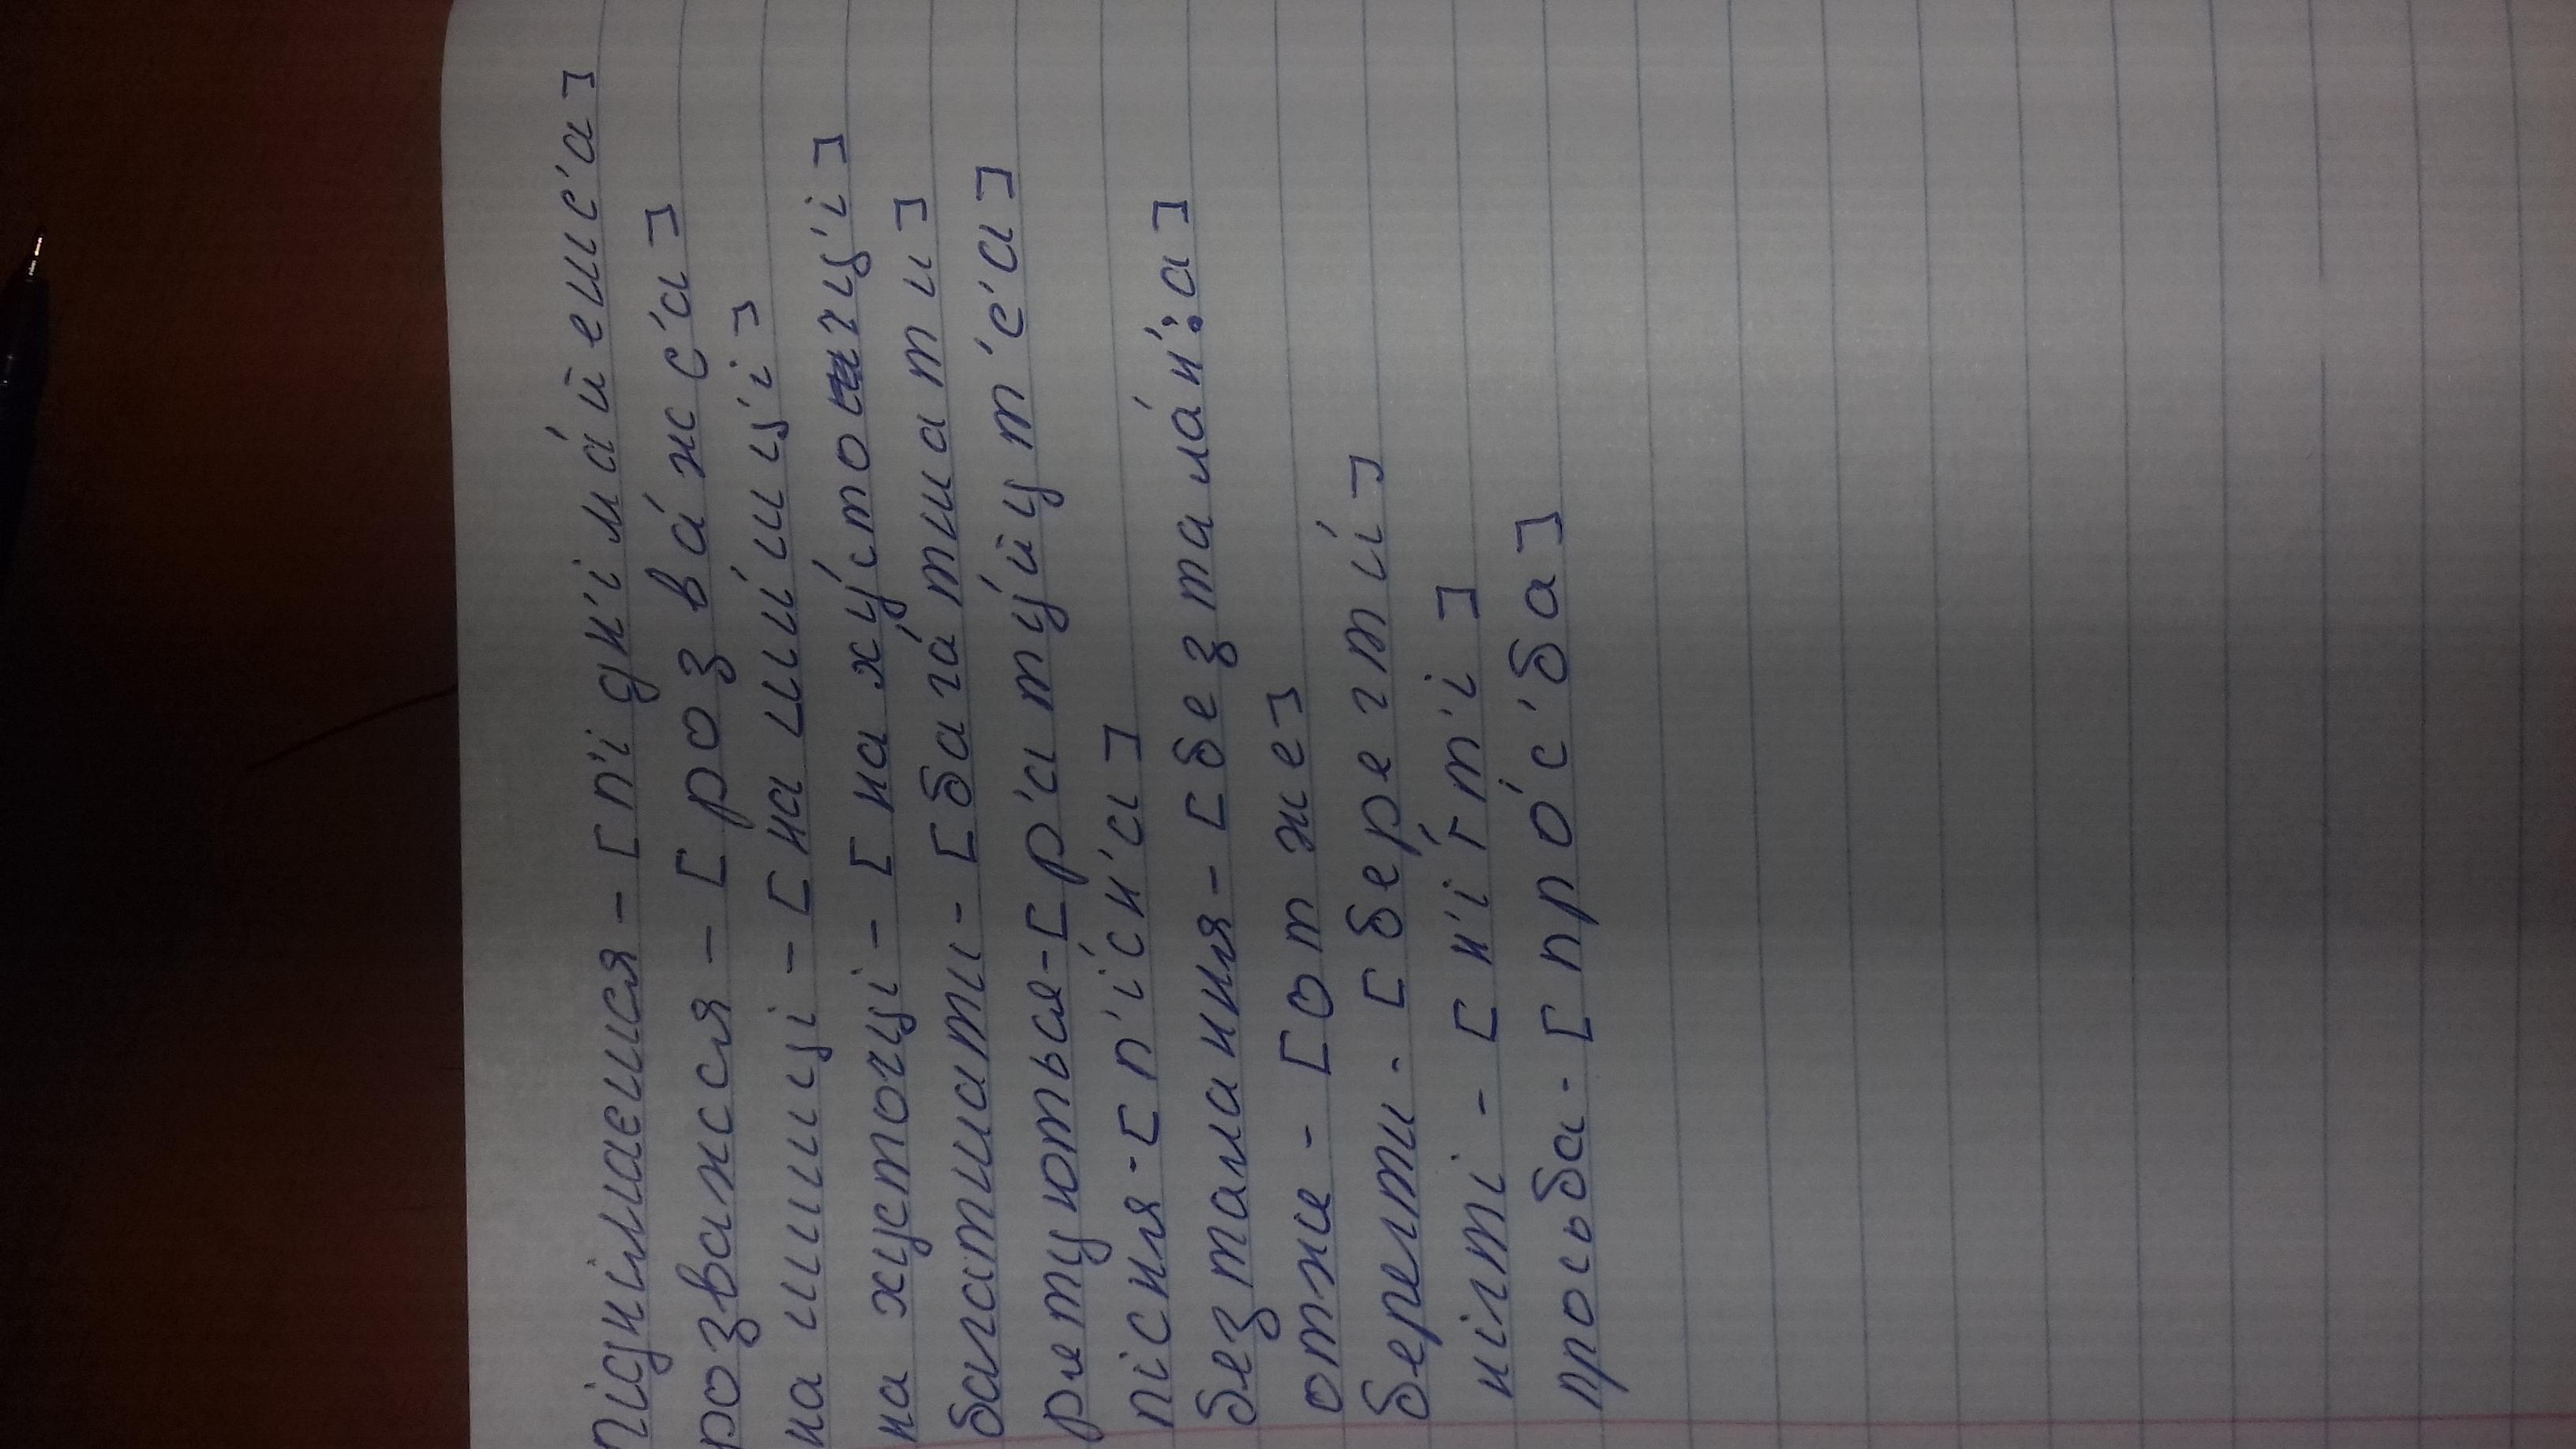 піднімаєшся - [п'ідн'іма́йеиис'а]
розважся - [розва́жс'а]
на шипці - [на ши́пц'і]
на хусточці - [на ху́сточц'і]
багатшати - [бага́тшати]
рятуються - [р'ату́йут'с'а]
пісня - [п'існ'а]
безталання - [безтала́н':а]
отже - [отже]
берегти - [берегти́]
нігті - [н'і́гт'і]
просьба - [про́с'ба]